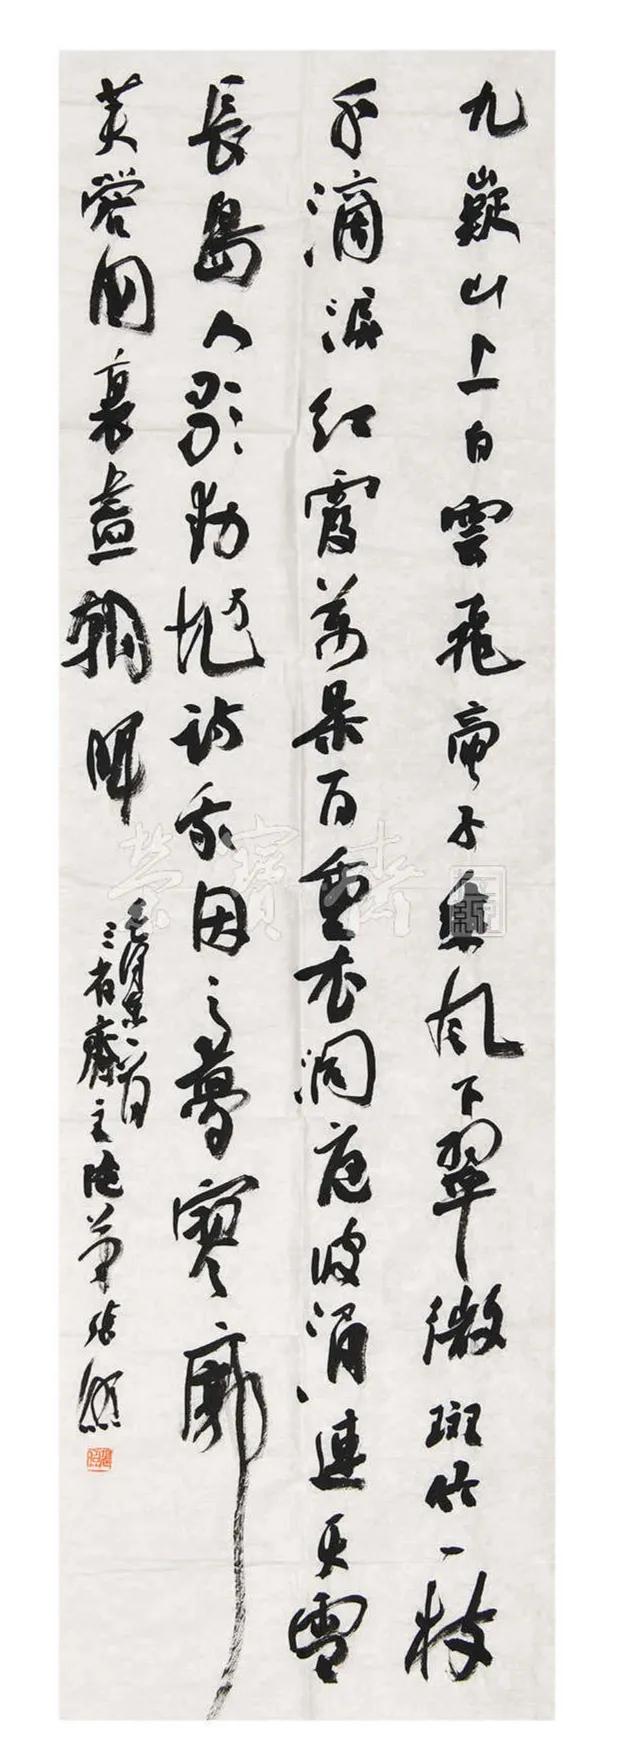 九嶷山上白雲飛帝子乘風下翠微斑竹一枝
千滴淚紅霞萬朵百重衣洞庭波涌連天雪
長島人歌動地詩我因之夢寥廓
芙蓉國裏盡朝暉
毛澤東
三省齋主
榮寶齋